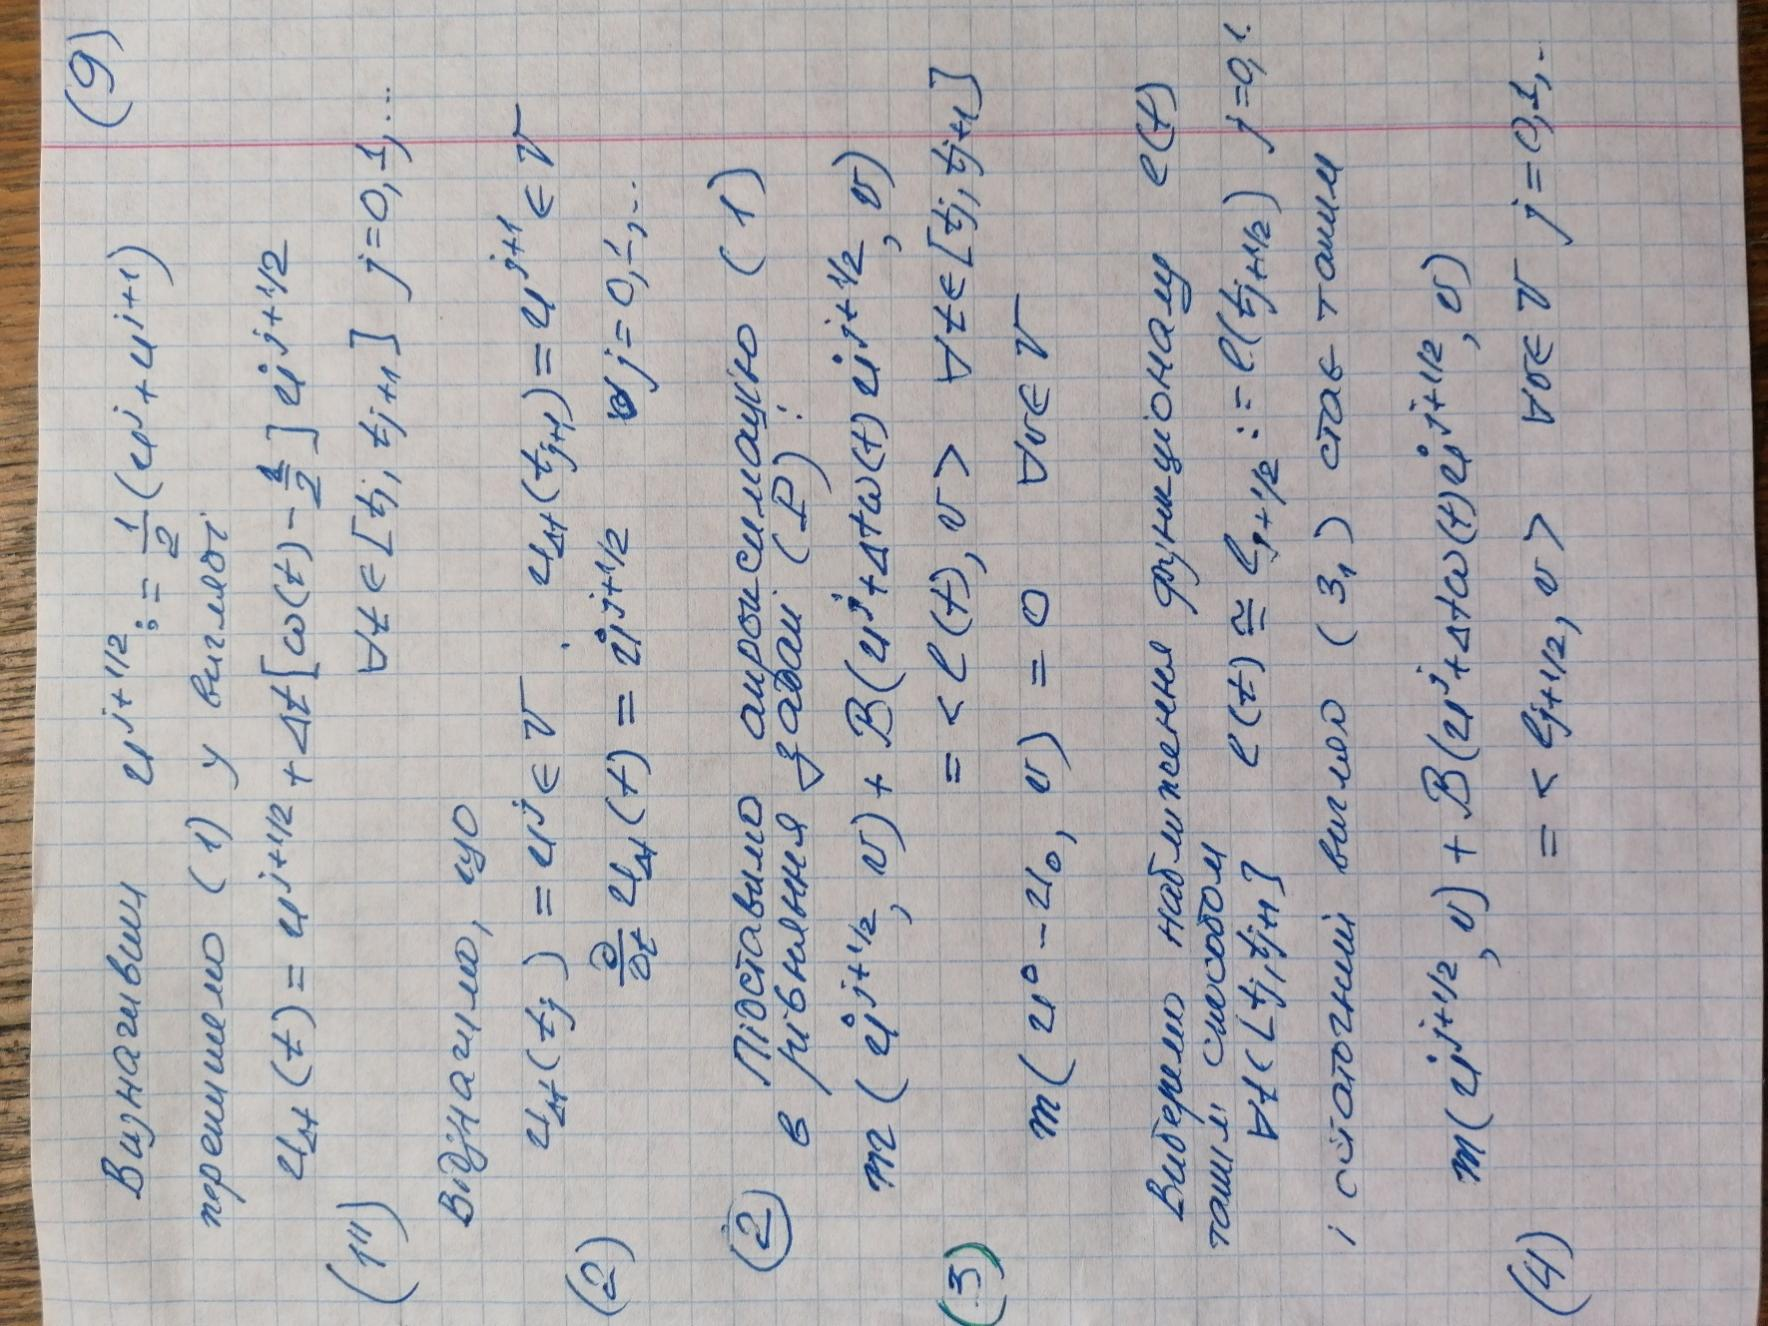 (9)
Визначивши u^{j+1/2} := \frac{1}{2}(u^j + u^{j+1})
перепишемо (1) у вигляді
u_{Δt}(t) = u^{j+1/2} + Δt[ω(t) - \frac{1}{2}] \dot{u}^{j+1/2}
(1'') ∀t ∈ [t_j, t_{j+1}] j=0,1,...
Відзначимо, що
u_{Δt}(t_j) = u^j ∈ V, u_{Δt}(t_{j+1}) = u^{j+1} ∈ V
(2) \frac{∂}{∂t} u_{Δt}(t) = \dot{u}^{j+1/2} ∀j=0,1,...
(2) Підставимо апроксимацію (1)
в рівняння задачі (P):
m(\dot{u}^{j+1/2}, v) + B(u^j + Δtω(t)\dot{u}^{j+1/2}, v)
(3) = <l(t), v> ∀t ∈ [t_j, t_{j+1}]
m(u^0 - u_0, v) = 0 ∀v ∈ V
Виберемо наближення функціоналу l(t)
таким способом l(t) ≅ l_{j+1/2} := l(t_{j+1/2}) j=0,1.
∀t ∈ [t_j, t_{j+1}]
і остаточний вигляд (3_1) стає таким
m(\dot{u}^{j+1/2}, v) + B(u^j + Δtω(t)\dot{u}^{j+1/2}, v)
(4) = <l_{j+1/2}, v> ∀v ∈ V j=0,1,..